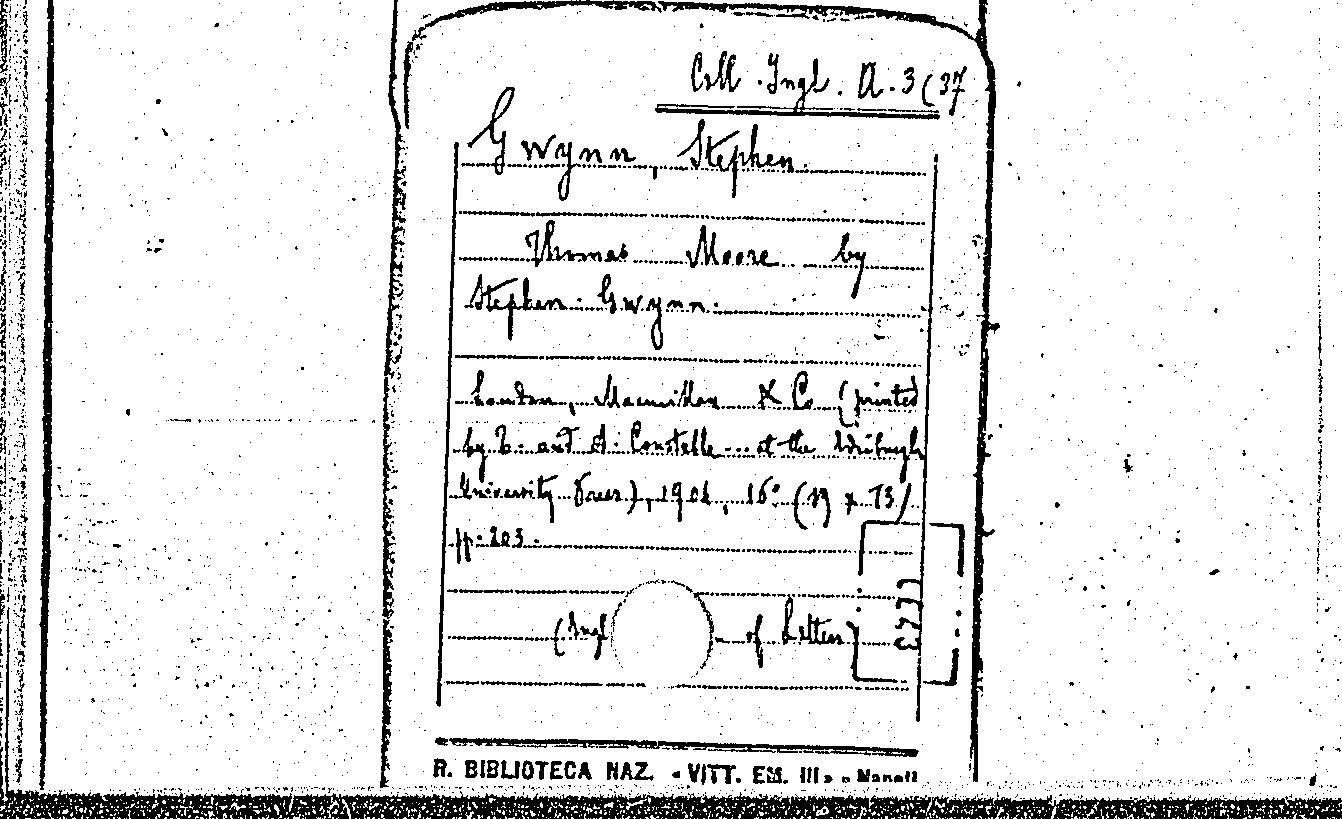 Coll. Ingl. A. 3 (37
Gwynn, Stephen.
Thomas Moore by
Stephen Gwynn.
London, Macmillan & Co (printed
by T. and A. Constable ... at the Edinburgh
University Press), 1904, 16° (19 x 13)
pp. 203.
(Engl of Letters)
R. BIBLIOTECA NAZ. «VITT. EM. III» - Napoli